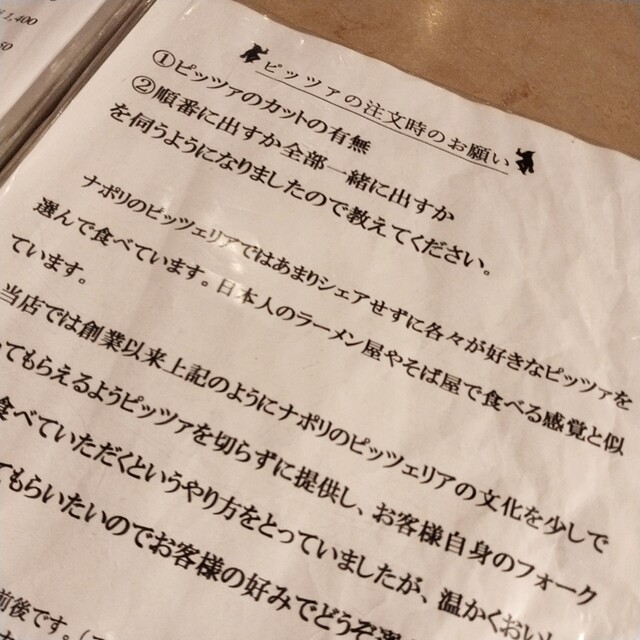 1,400
ピッツァの注文時のお願い
①ピッツァのカットの有無
②順番に出すか全部一緒に出すか
を伺うようになりましたので教えてください。
ナポリのピッツェリアではあまりシェアせずに各々が好きなピッツァを
選んで食べています。日本人のラーメン屋やそば屋で食べる感覚と似
ています。
当店では創業以来上記のようにナポリのピッツェリアの文化を少しで
ってもらえるようピッツァを切らずに提供し、お客様自身のフォーク
食べていただくというやり方をとっていましたが、温かくおいし
てもらいたいのでお客様の好みでどうぞ選
前後です。